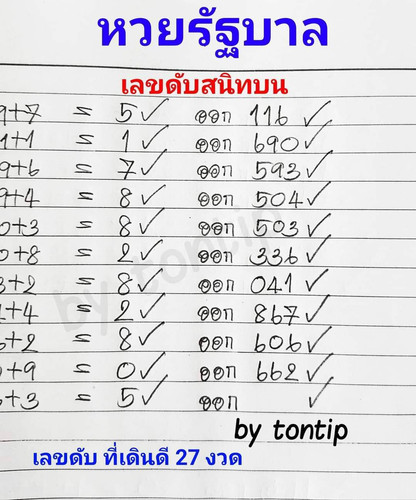 หวยรัฐบาล
เลขดับสนิทบน
9+7 = 5✓ ออก 116 ✓
1+1 = 1✓ ออก 690✓
9+6 = 7✓ ออก 593✓
9+4 = 8✓ ออก 504✓
0+3 = 8✓ ออก 503✓
0+8 = 2✓ ออก 336✓
3+2 = 8✓ ออก 041✓
+4 = 2✓ ออก 867✓
+2 = 8✓ ออก 606✓
+9 = 0✓ ออก 662✓
+3 = 5✓ ออก ✓
by tontip
by tontip
เลขดับ ที่เดินดี 27 งวด